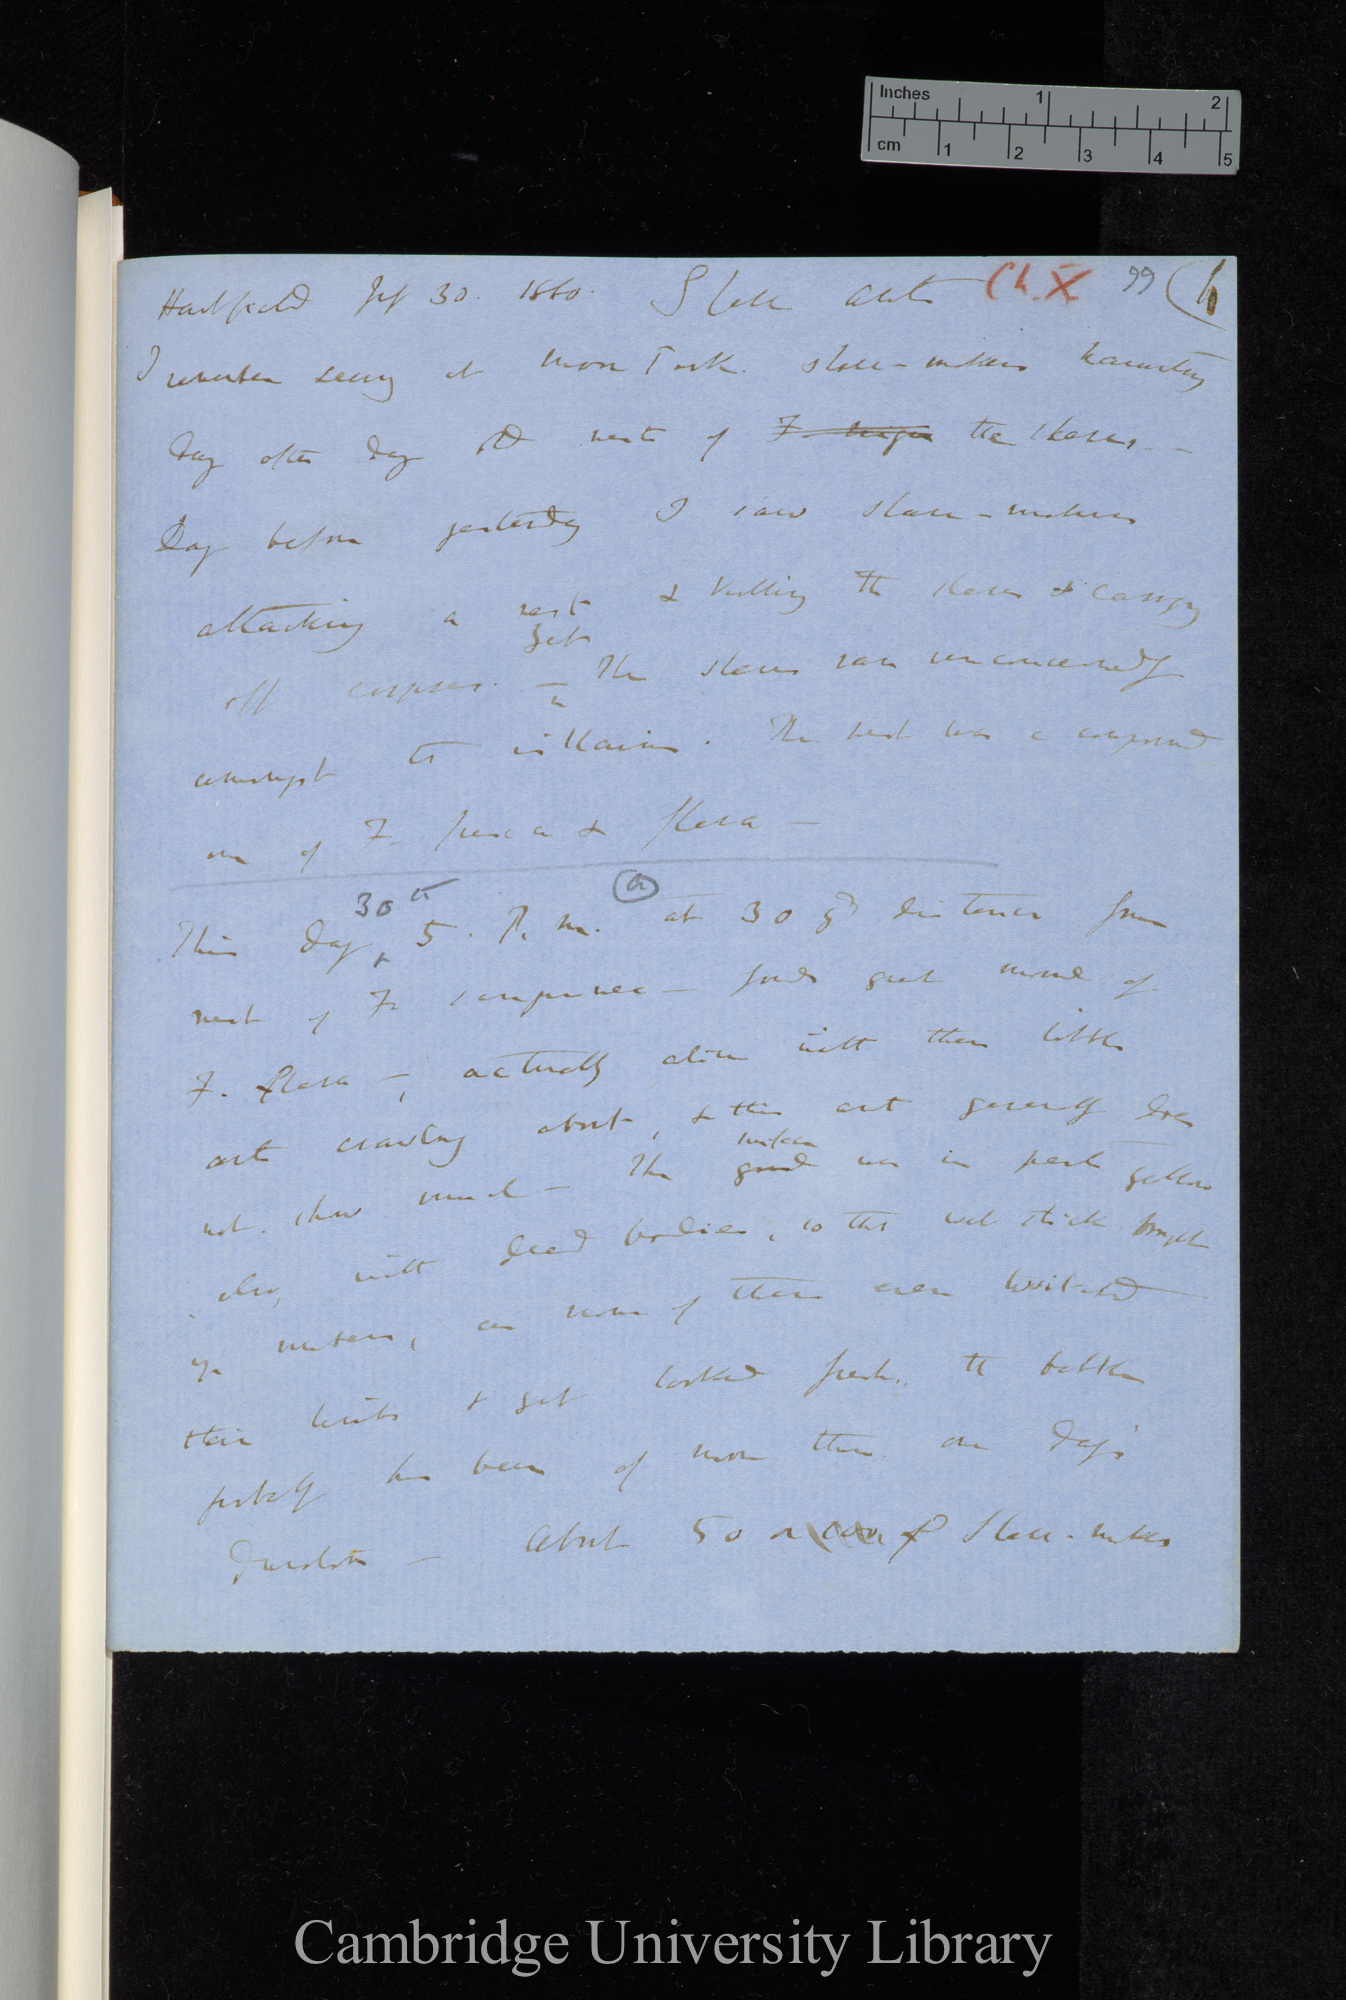 Inches 1 2
cm 1 2 3 4 5
Hartfield July 30. 1860. Slave ants Ch. X 99 (h
I remember seeing at Moor Park. slave-makers haunting
day after day old nests of F. nigra the slaves. —
Day before yesterday I saw slave-makers
attacking a nest & killing the slaves & carrying
off corpses. — yet in The slaves ran unconcernedly
amongst the villains. The nest was a compound
one of F. fusca & flava —
This day 30th 5. P.m. (a) at 30 yd distance from
nest of F. sanguinea — found great mound of
F. flava —, actually alive with these little
ants crawling about, & this ant generally does
not show much — The surface ground was in part yellow
also, with dead bodies, so that wet stick brought
up numbers, as some of them even twitched
their limbs & yet looked fresh, the battle
probably has been of more than one day's
duration — About 50 or 100 of Slave-makers
Cambridge University Library